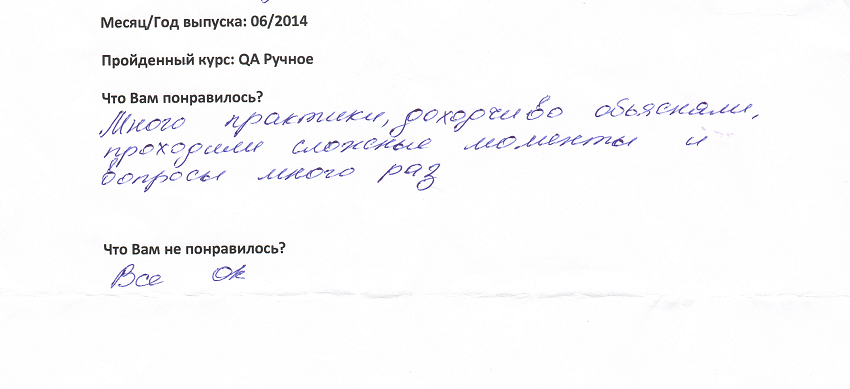 Месяц/Год выпуска: 06/2014
Пройденный курс: QA Ручное
Что Вам понравилось?
Много практики, доходчиво обьясняли,
проходили сложные моменты и
вопросы много раз
Что Вам не понравилось?
Все Ок